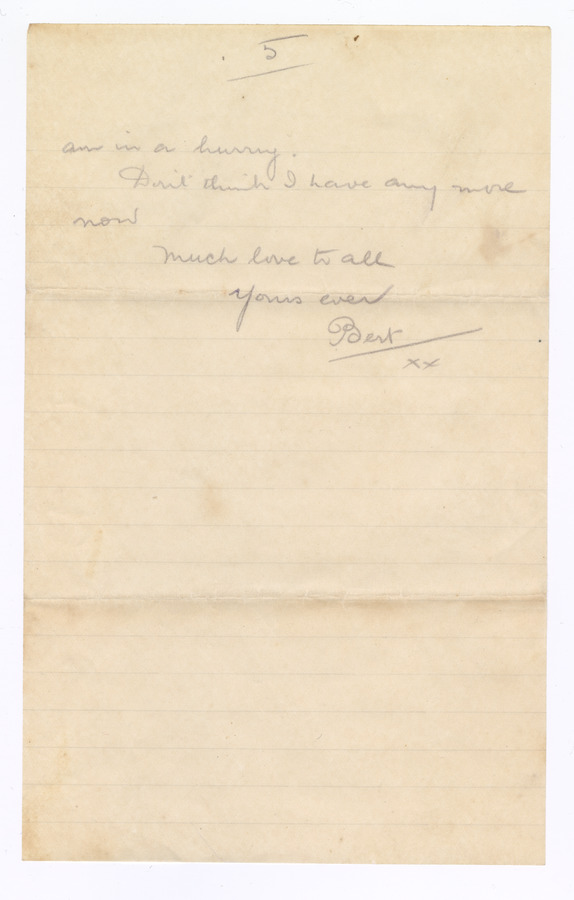 5
am in a hurry.
Don't think I have any more
now
Much love to all
Yours ever
Bert
xx